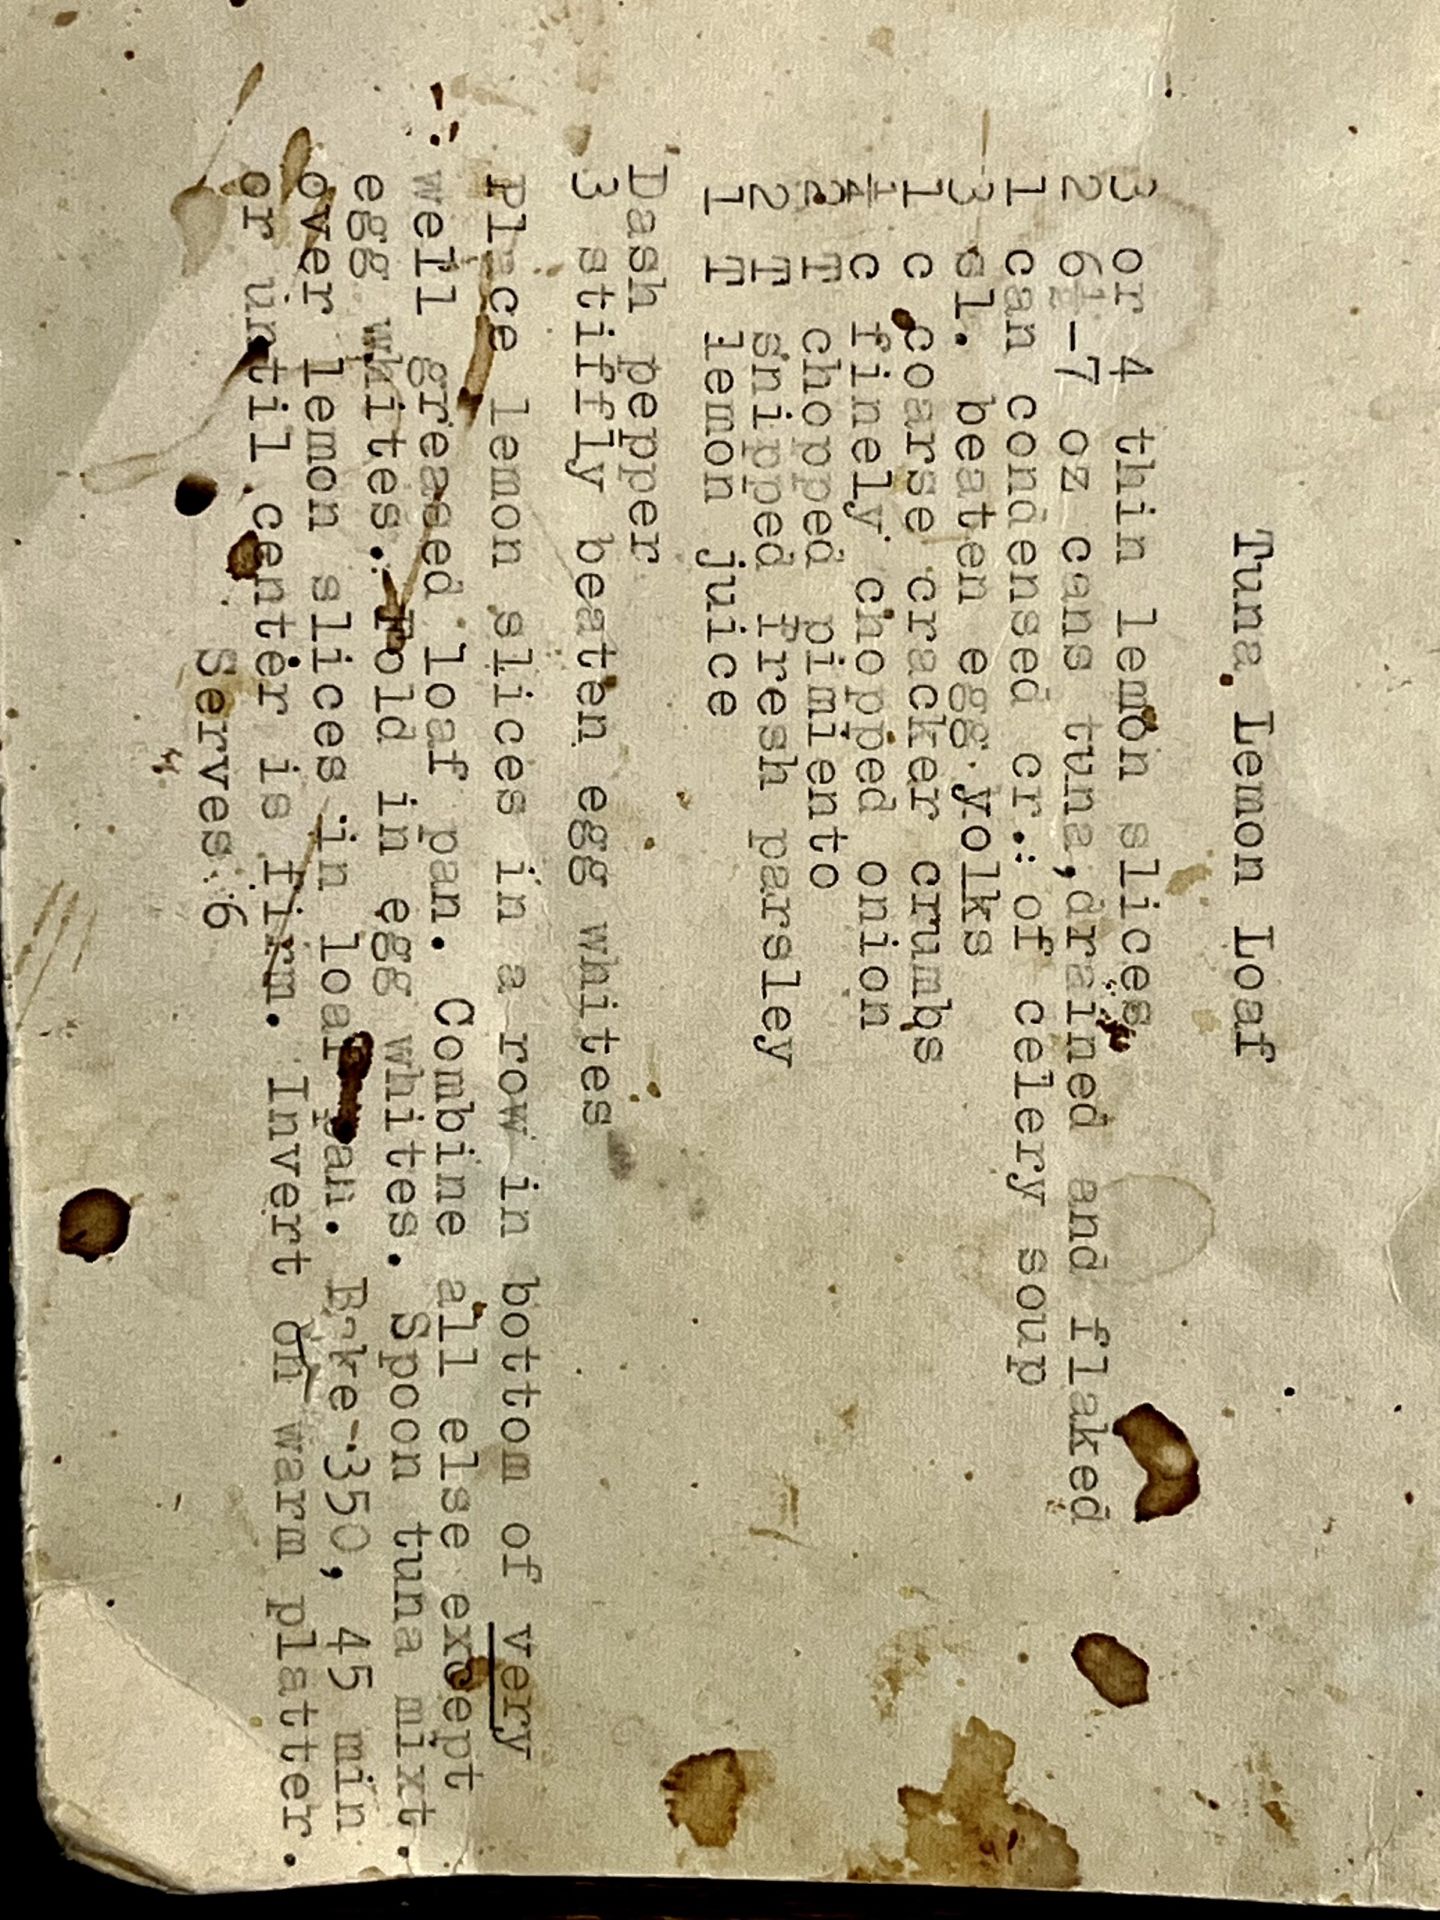 Tuna Lemon Loaf
3 or 4 thin lemon slices
2 6½-7 oz cans tuna,drained and flaked
1 can condensed cr. of celery soup
3 sl. beaten egg yolks
1 c coarse cracker crumbs
¼ c finely chopped onion
2 T chopped pimiento
2 T snipped fresh parsley
1 T lemon juice
Dash pepper
3 stiffly beaten egg whites
Place lemon slices in a row in bottom of very
well greased loaf pan. Combine all else except
egg whites. Fold in egg whites. Spoon tuna mixt.
over lemon slices in loaf pan. Bake-350, 45 min
or until center is firm. Invert on warm platter.
Serves 6